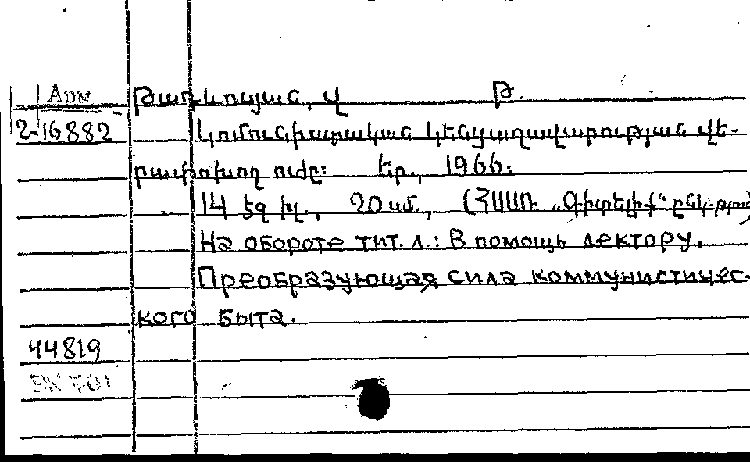 Арм
Թադևոսյան, Վ Թ.
2-16882 Կոմունիստական կենցաղավարության վե-
րափոխող ուժը: Եր., 1966.
14 էջ իլ., 20 սմ., (ՀՍՍՌ „Գիտելիք" ընկ-թյուն)
На обороте тит. л.: В помощь лектору.
Преобразующая сила коммунистичес-
кого быта.
44819